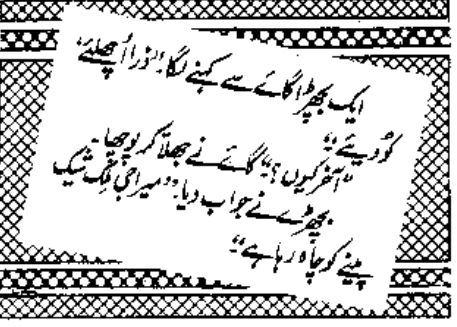 ایک بچھڑا گائے سے کہنے لگا "ذرا اُچھلئے،
کُودیئے۔"
"آخر کیوں؟" گائے نے جھلّا کر پوچھا۔
بچھڑے نے جواب دیا۔ "میرا جی مِلک شیک
پینے کو چاہ رہا ہے۔"